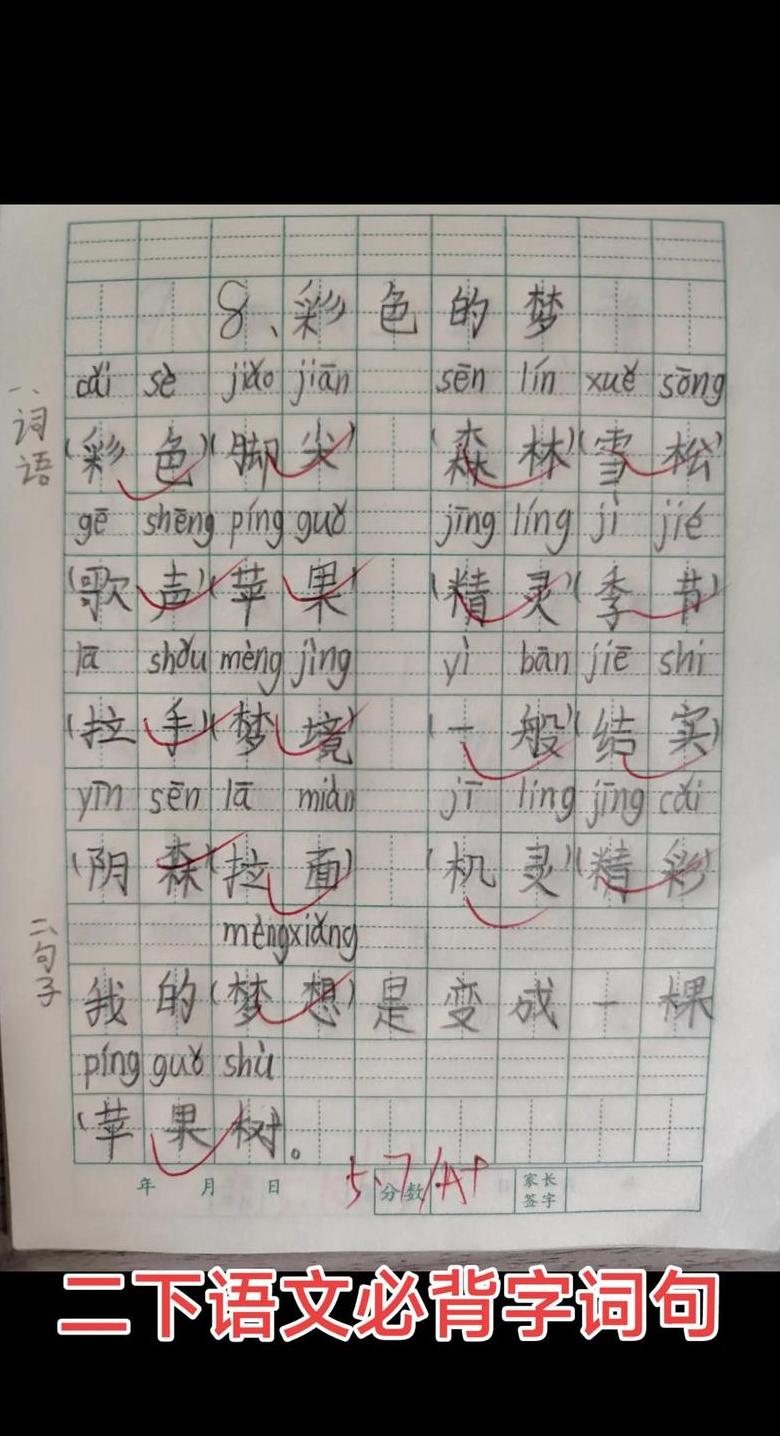 8、彩色的梦
cǎi sè jiǎo jiān sēn lín xuě sōng
一、词语
(彩色)(脚尖) (森林)(雪松)
gē shēng píng guǒ jīng líng jì jié
(歌声)(苹果) (精灵)(季节)
lā shǒu mèng jìng yì bān jiē shi
(拉手)(梦境) (一般)(结实)
yīn sēn lā miàn jī líng jīng cǎi
(阴森)(拉面) (机灵)(精彩)
mèng xiǎng
二、句子
我的(梦想)是变成一棵
píng guǒ shù
(苹果树。
年 月 日 5.7/A+ 分数 家长签字
二下语文必背字词句